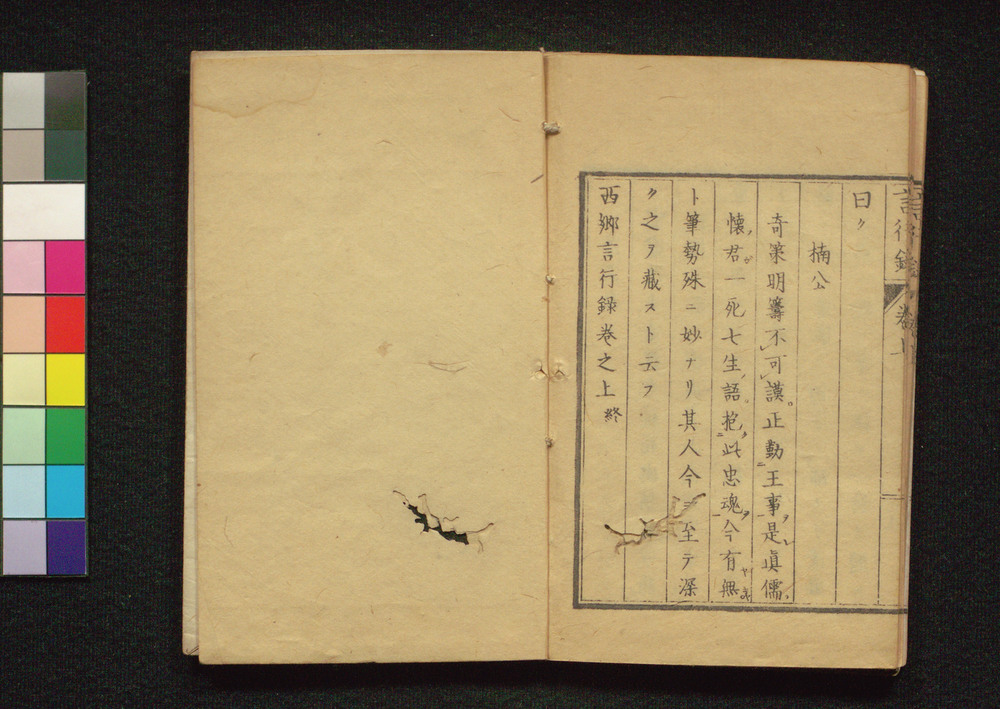 言行錄 卷上
曰ク
楠公
奇策明籌不可謨。正勤王事是眞儒
懷君一死七生語。抱此忠魂今有無
ト筆勢殊ニ妙ナリ其人今ニ至テ深
ク之ヲ藏スト云フ
西郷言行録卷之上終